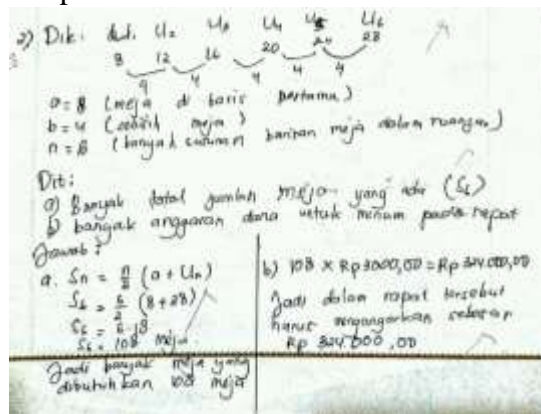 2) Dik: dik: U₂ U₃ U₄ U₅ U₆
8 12 16 20 24 28
4 4 4 4
a = 8 (meja di baris pertama)
b = 4 (selisih meja)
n = 6 (banyak susunan barisan meja dalam ruangan)
Dit:
a) Banyak total jumlah meja yang ada (S₆)
b) banyak anggaran dana untuk minum pada rapat
Jawab:
a. Sn = n/2 (a + Un)
S₆ = 6/2 (8+28)
S₆ = 108 meja
Jadi banyak meja yang
dibutuhkan 108 meja
b) 108 x Rp 3000,00 = Rp 324.000,00
Jadi dalam rapat tersebut
harus menganggarkan sebesar
Rp 324.000,00